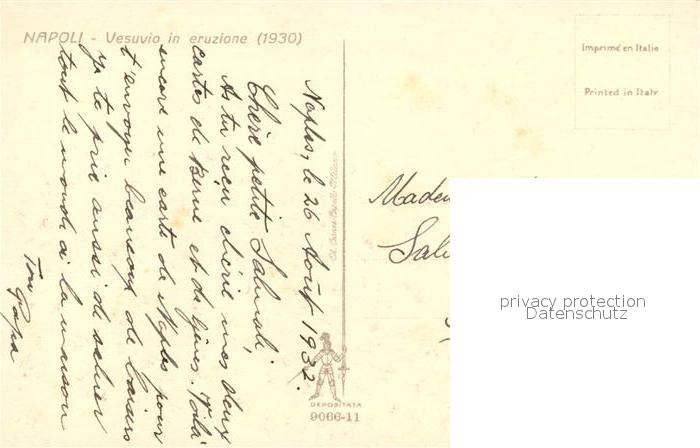 NAPOLI - Vesuvio in eruzione (1930)
Imprimé en Italie
Printed in Italy
Naples, le 26 Août 1932.
Chère petite Salmali,
As tu reçu chérie mes deux
cartes de Berne et de Gênes. Voilà
encore une carte de Naples pour
t'envoyer beaucoup de baisers
Je te prie aussi de saluer
tout le monde à la maison
Ton Papa
DEPOSITATA
9066-11
privacy protection
Datenschutz